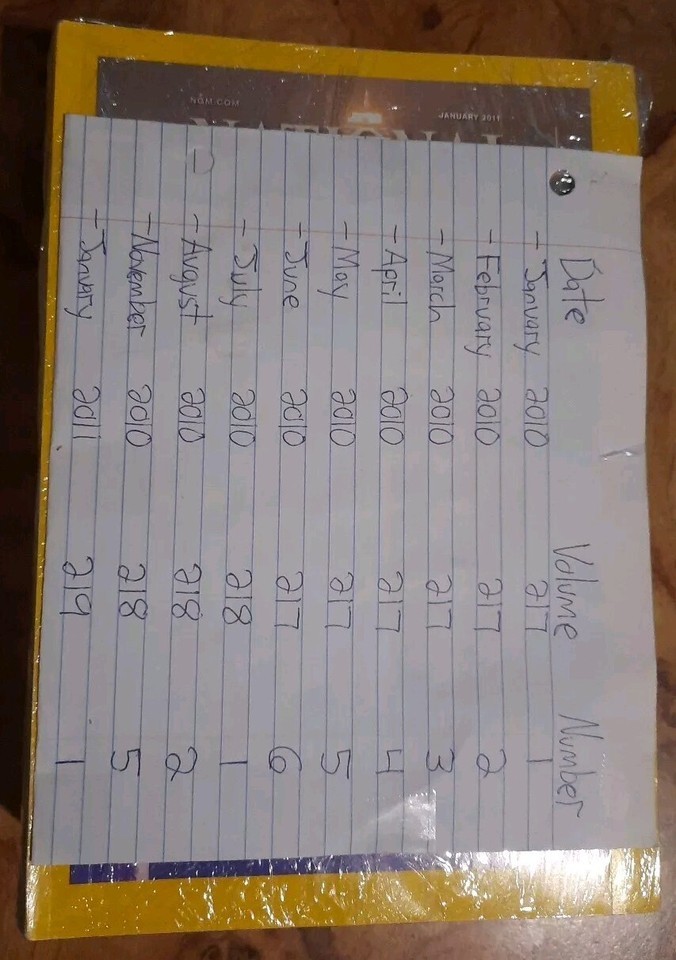 NGM.COM
JANUARY 2011
NATIONAL
Date Volume Number
- January 2010 217 1
- February 2010 217 2
- March 2010 217 3
- April 2010 217 4
- May 2010 217 5
- June 2010 217 6
- July 2010 218 1
- August 2010 218 2
- November 2010 218 5
- January 2011 219 1